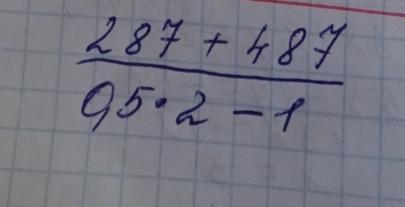 287 + 487
0,5 · 2 - 1